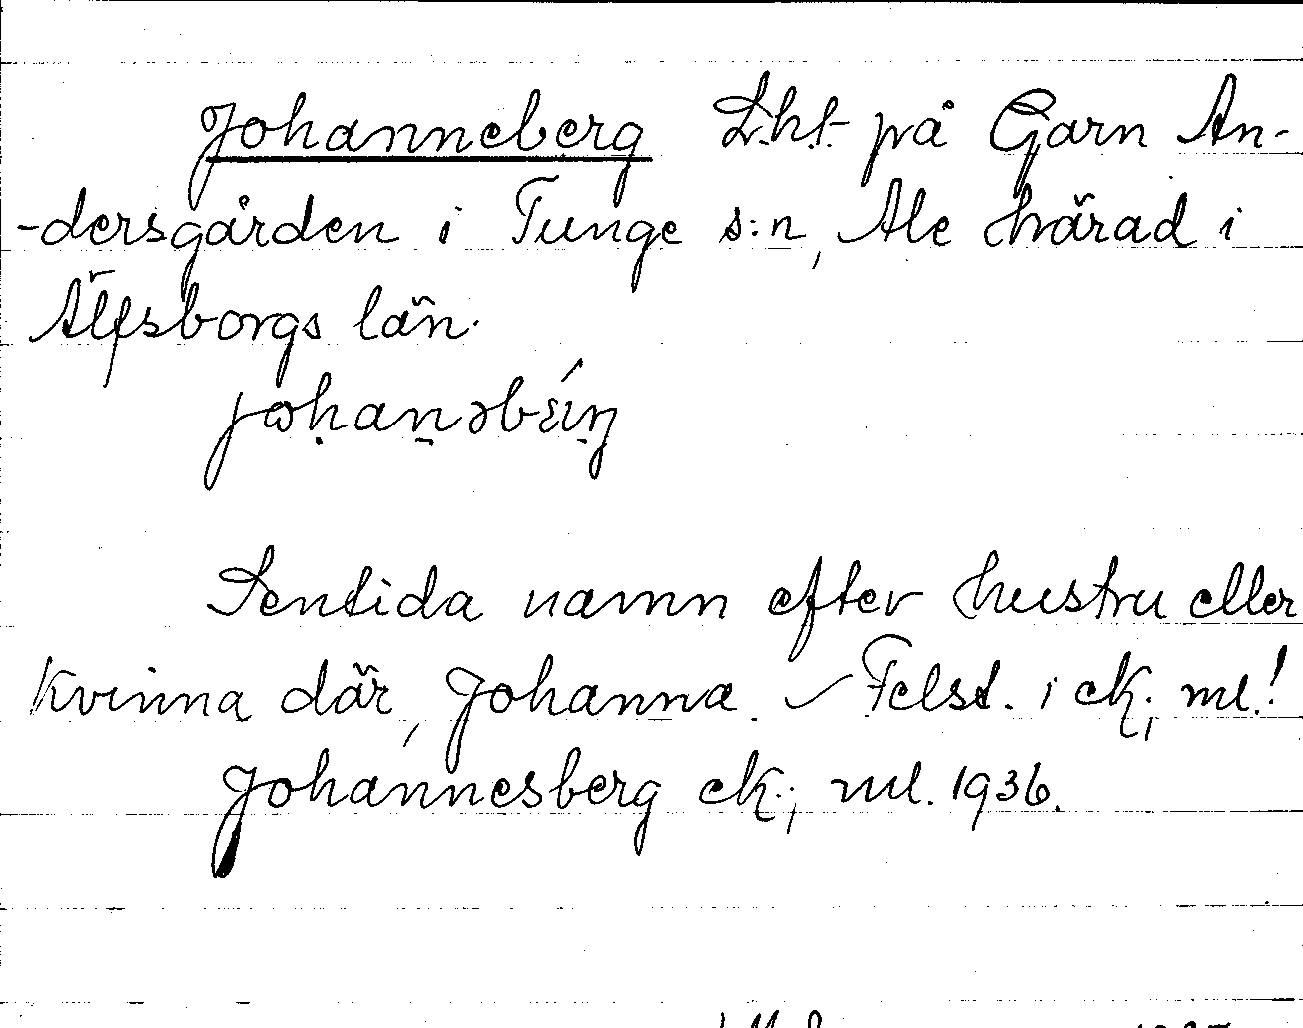 Johanneberg L.h.t. på Garn An-
-dersgården i Tunge s:n, Ale härad i
Älfsborgs län.
Sentida namn efter hustru eller
kvinna där, Johanna. Felst. i ek; ml!
Johannesberg ek.; ml. 1936.